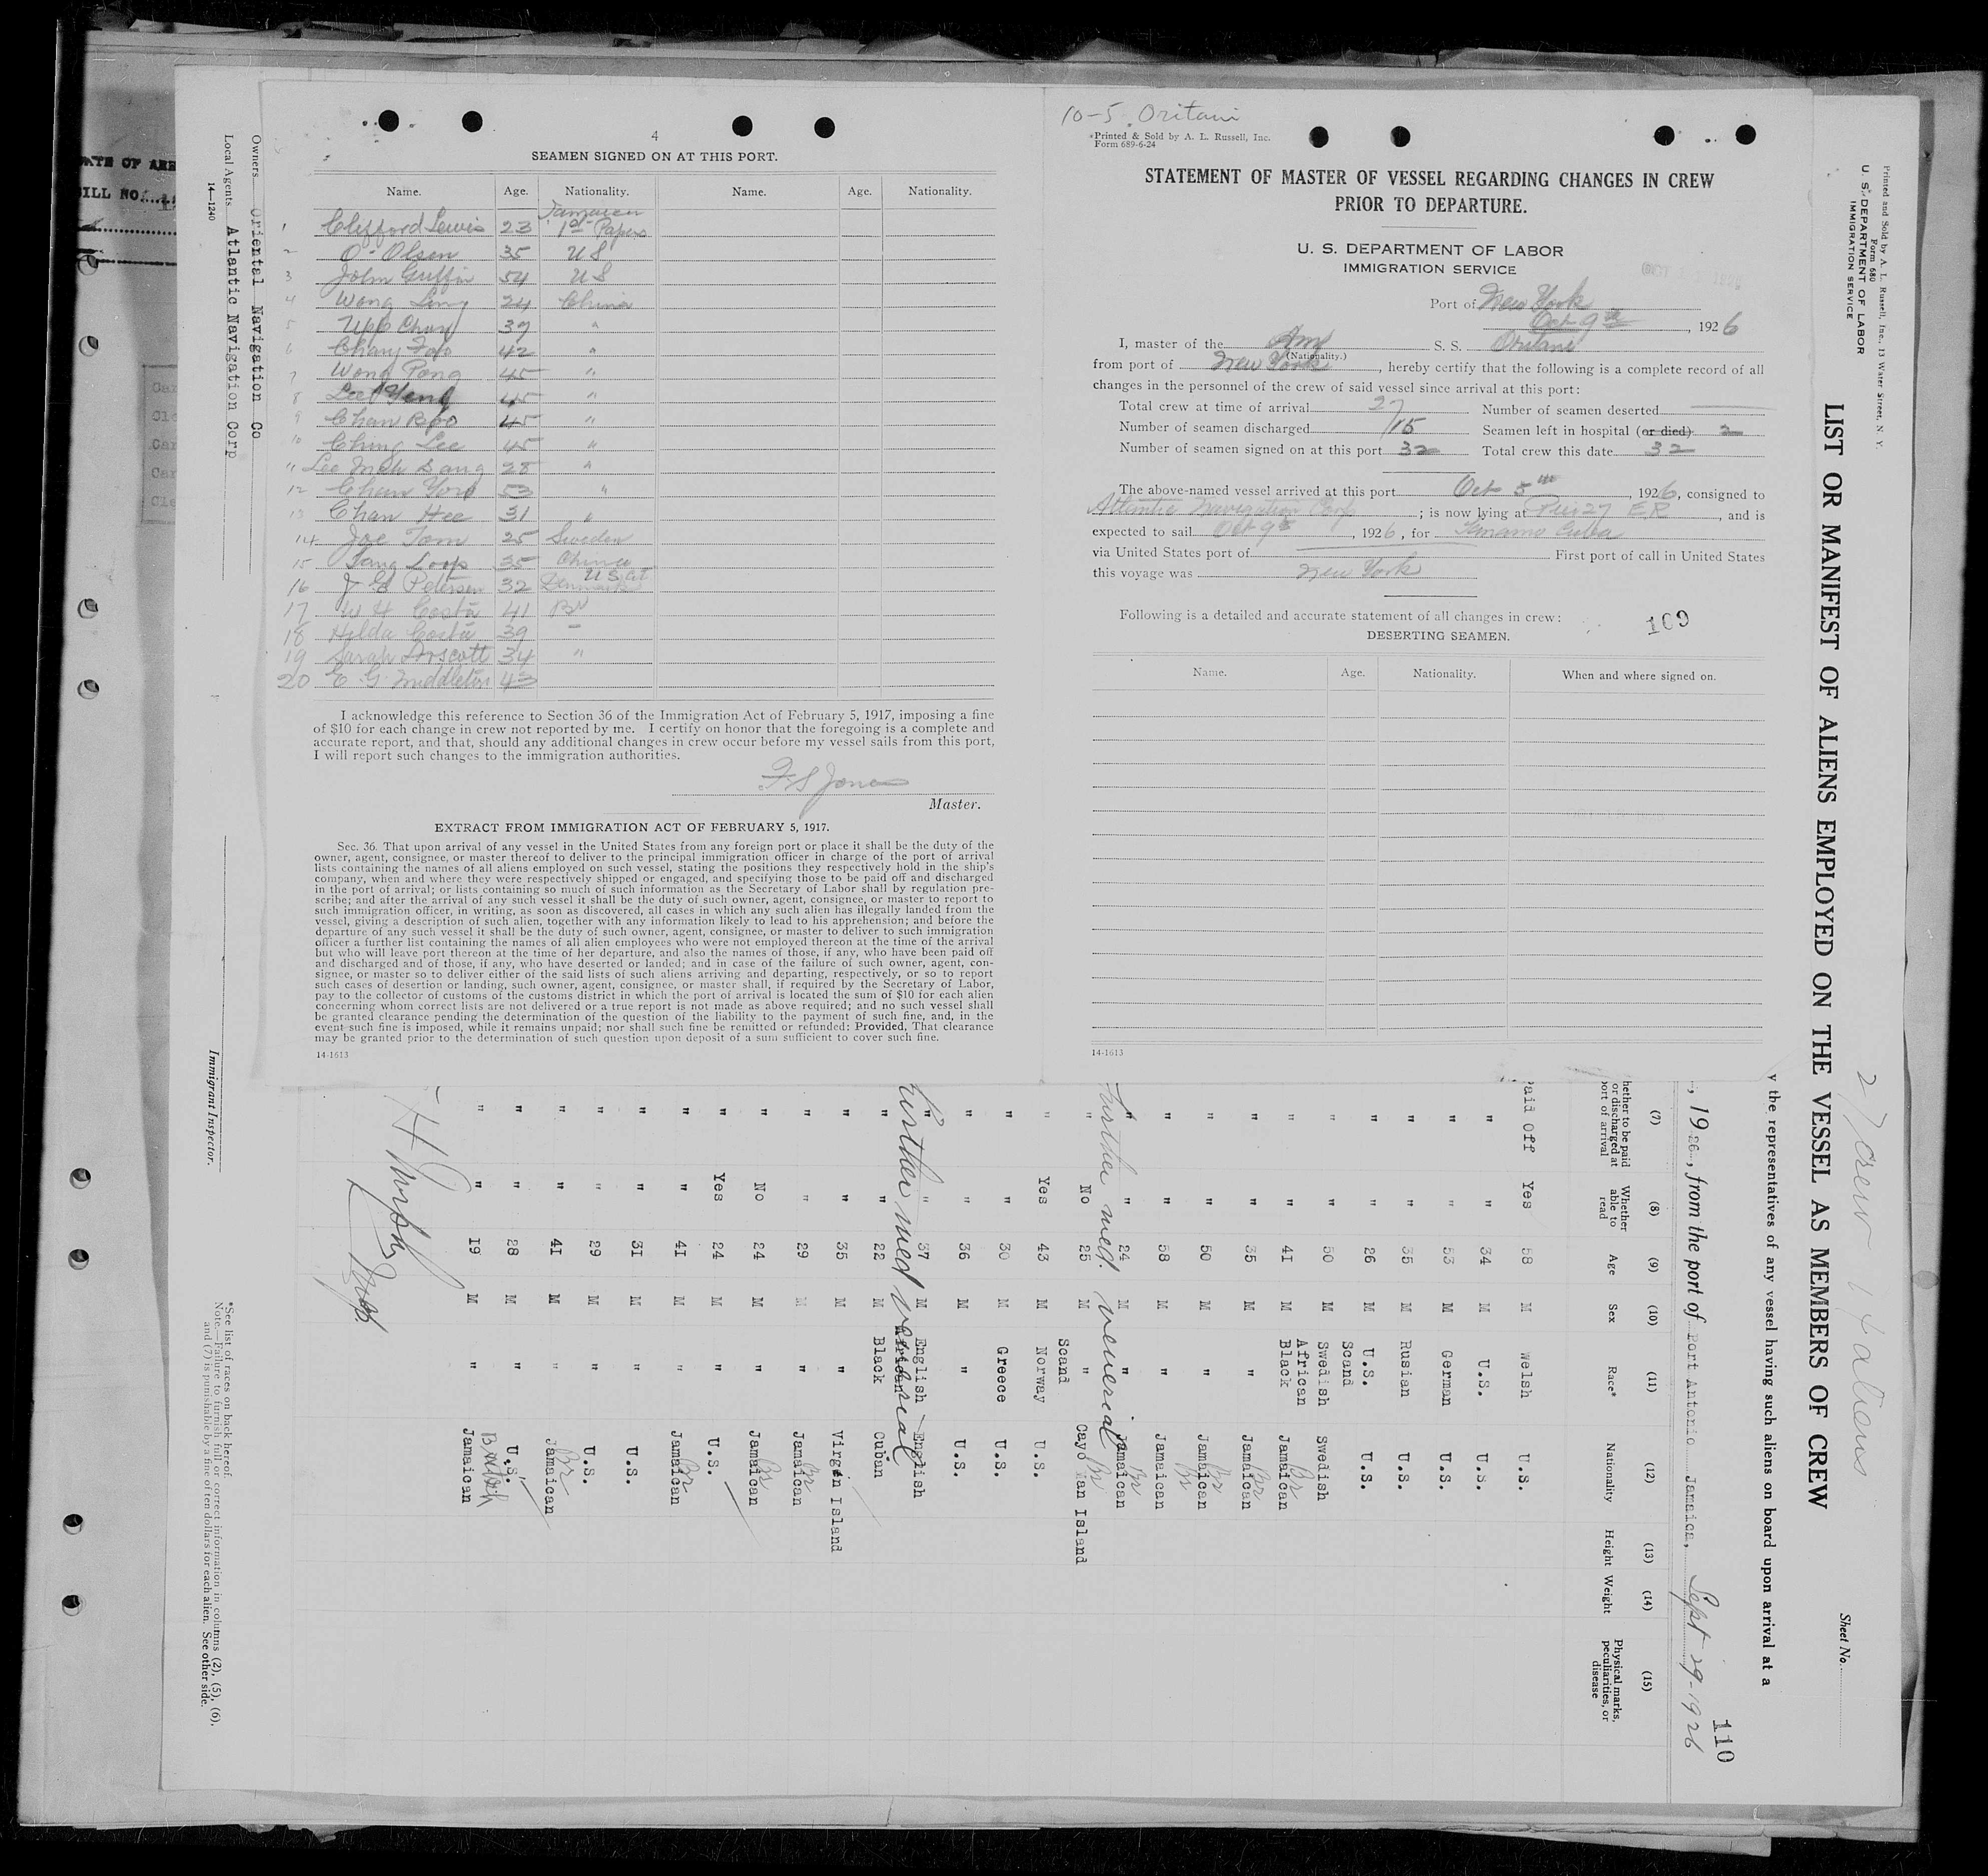 4
SEAMEN SIGNED ON AT THIS PORT.
Name. Age. Nationality. Name. Age. Nationality.
1 Clifford Lewis 23 Jamaica 1st Papers
2 O. Olsen 35 US
3 John Griffin 54 US
4 Wong Ling 24 China
5 Chan 39 "
6 Chang Foo 42 "
7 Wong Pong 45 "
8 Lee 45 "
9 Chan Boo 45 "
10 Ching Lee 45 "
11 Lee 28 "
12 Chan York 53 "
13 Chan Hee 31 "
14 Joe Tom 25 Sweden
15 35 China
16 J Petersen 32 Denmark
17 W H Costa 41 Br
18 Hilda Costa 39
19 Sarah Arscott 34 "
20 E. G. Middleton 43
I acknowledge this reference to Section 36 of the Immigration Act of February 5, 1917, imposing a fine
of $10 for each change in crew not reported by me. I certify on honor that the foregoing is a complete and
accurate report, and that, should any additional changes in crew occur before my vessel sails from this port,
I will report such changes to the immigration authorities.
F. S Jones
Master.
EXTRACT FROM IMMIGRATION ACT OF FEBRUARY 5, 1917.
Sec. 36. That upon arrival of any vessel in the United States from any foreign port or place it shall be the duty of the
owner, agent, consignee, or master thereof to deliver to the principal immigration officer in charge of the port of arrival
lists containing the names of all aliens employed on such vessel, stating the positions they respectively hold in the ship's
company, when and where they were respectively shipped or engaged, and specifying those to be paid off and discharged
in the port of arrival; or lists containing so much of such information as the Secretary of Labor shall by regulation pre-
scribe; and after the arrival of any such vessel it shall be the duty of such owner, agent, consignee, or master to report to
such immigration officer, in writing, as soon as discovered, all cases in which any such alien has illegally landed from the
vessel, giving a description of such alien, together with any information likely to lead to his apprehension; and before the
departure of any such vessel it shall be the duty of such owner, agent, consignee, or master to deliver to such immigration
officer a further list containing the names of all alien employees who were not employed thereon at the time of the arrival
but who will leave port thereon at the time of her departure, and also the names of those, if any, who have been paid off
and discharged and of those, if any, who have deserted or landed; and in case of the failure of such owner, agent, con-
signee, or master so to deliver either of the said lists of such aliens arriving and departing, respectively, or so to report
such cases of desertion or landing, such owner, agent, consignee, or master shall, if required by the Secretary of Labor,
pay to the collector of customs of the customs district in which the port of arrival is located the sum of $10 for each alien
concerning whom correct lists are not delivered or a true report is not made as above required; and no such vessel shall
be granted clearance pending the determination of the question of the liability to the payment of such fine, and, in the
event such fine is imposed, while it remains unpaid; nor shall such fine be remitted or refunded: Provided, That clearance
may be granted prior to the determination of such question upon deposit of a sum sufficient to cover such fine.
14-1613
10-5. Oritani
Printed & Sold by A. L. Russell, Inc.
Form 689-6-24
STATEMENT OF MASTER OF VESSEL REGARDING CHANGES IN CREW
PRIOR TO DEPARTURE.
U. S. DEPARTMENT OF LABOR
IMMIGRATION SERVICE
Port of New York
Oct 9th, 1926
I, master of the Am S. S. Oritani
(Nationality.)
from port of New York, hereby certify that the following is a complete record of all
changes in the personnel of the crew of said vessel since arrival at this port:
Total crew at time of arrival 27 Number of seamen deserted
Number of seamen discharged 15 Seamen left in hospital (or died) 2
Number of seamen signed on at this port 32 Total crew this date 32
The above-named vessel arrived at this port Oct 5th, 1926, consigned to
Atlantic Navigation Corp; is now lying at Pier 27 E.R, and is
expected to sail Oct 9th, 1926, for Tanamo Cuba
via United States port of First port of call in United States
this voyage was New York
Following is a detailed and accurate statement of all changes in crew:
109
DESERTING SEAMEN.
Name. Age. Nationality. When and where signed on.
14-1613
Printed and Sold by A. L. Russell, Inc., 13 Water Street, N. Y.
Form 680
U. S. DEPARTMENT OF LABOR
IMMIGRATION SERVICE
27 crew 14 aliens
Sheet No.
LIST OR MANIFEST OF ALIENS EMPLOYED ON THE VESSEL AS MEMBERS OF CREW
the representatives of any vessel having such aliens on board upon arrival at a
110
, 1926, from the port of Port Antonio Jamaica, Sept 29-1926
(7) (8) (9) (10) (11) (12) (13) (14) (15)
Whether able to read Age Sex Race* Nationality Height Weight Physical marks, peculiarities, or disease
aid Off Yes 58 M Welsh U.S.
" " 34 M U.S. U.S.
" " 53 M German U.S.
" " 35 M Rusian U.S.
" " 26 M U.S. U.S.
" " 50 M Scand Swedish Swedish
" " 41 M African Black Jamaican Br
" " 35 M " Jamaican Br
" " 50 M " Jamaican Br
" " 58 M " Jamaican Br
" " 24 M " Jamaican Br
Further med. venereal
" No 25 M " Cayman Island Br
" Yes 43 M Scand Norway U.S.
" " 30 M Greece U.S.
" " 36 M " U.S.
" " 37 M English English
Further med venereal
" " 22 M Black Cuban
" " 35 M " Virgin Island
" " 29 M " Jamaican Br
" No 24 M " Jamaican Br
" Yes 24 M " U.S.
" " 41 M " Jamaican Br
" " 31 M " U.S.
" " 29 M " U.S.
" " 41 M " Jamaican Br
" " 28 M " U.S.
" " 19 M " Jamaican British
Murphy Insp.
Immigrant Inspector.
Owners Oriental Navigation Co
Local Agents Atlantic Navigation Corp
14-1240
*See list of races on back hereof.
Note.—Failure to furnish full or correct information in columns (2), (5), (6),
and (7) is punishable by a fine of ten dollars for each alien. See other side.
ILL NO.